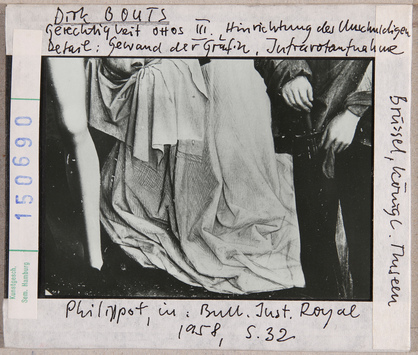 Dirk BOUTS
Gerechtigkeit Ottos III. Hinrichtung des Unschuldigen
Detail: Gewand der Gräfin, Infrarotaufnahme
Brüssel, Königl. Museen
150690
Kunstgesch.
Sem. Hamburg
Philippot, in: Bull. Inst. Royal
1958, S. 32